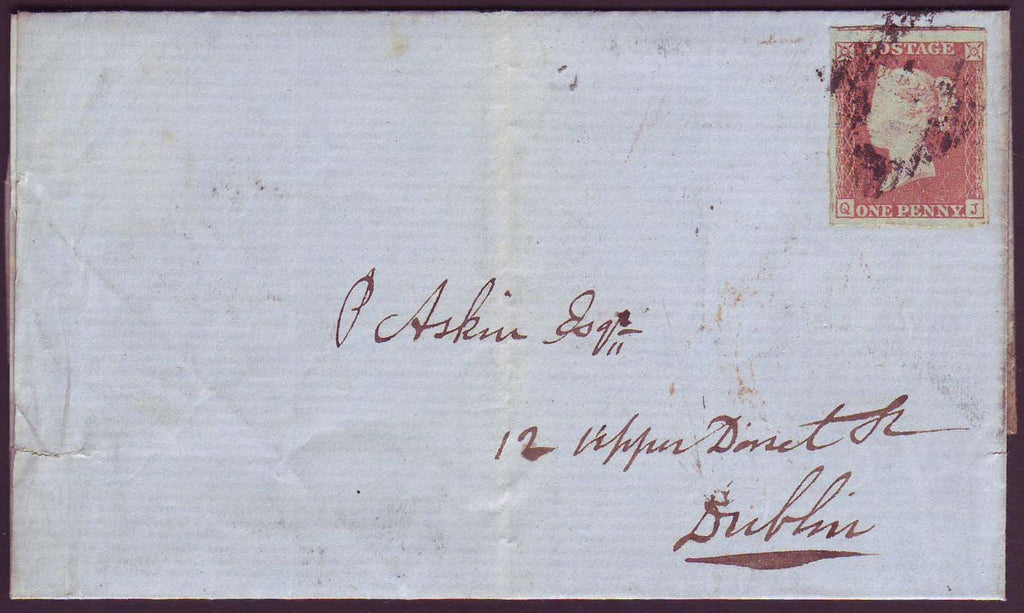 POSTAGE
Q ONE PENNY J
P Askin Esqr
12 Upper Dorset St
Dublin